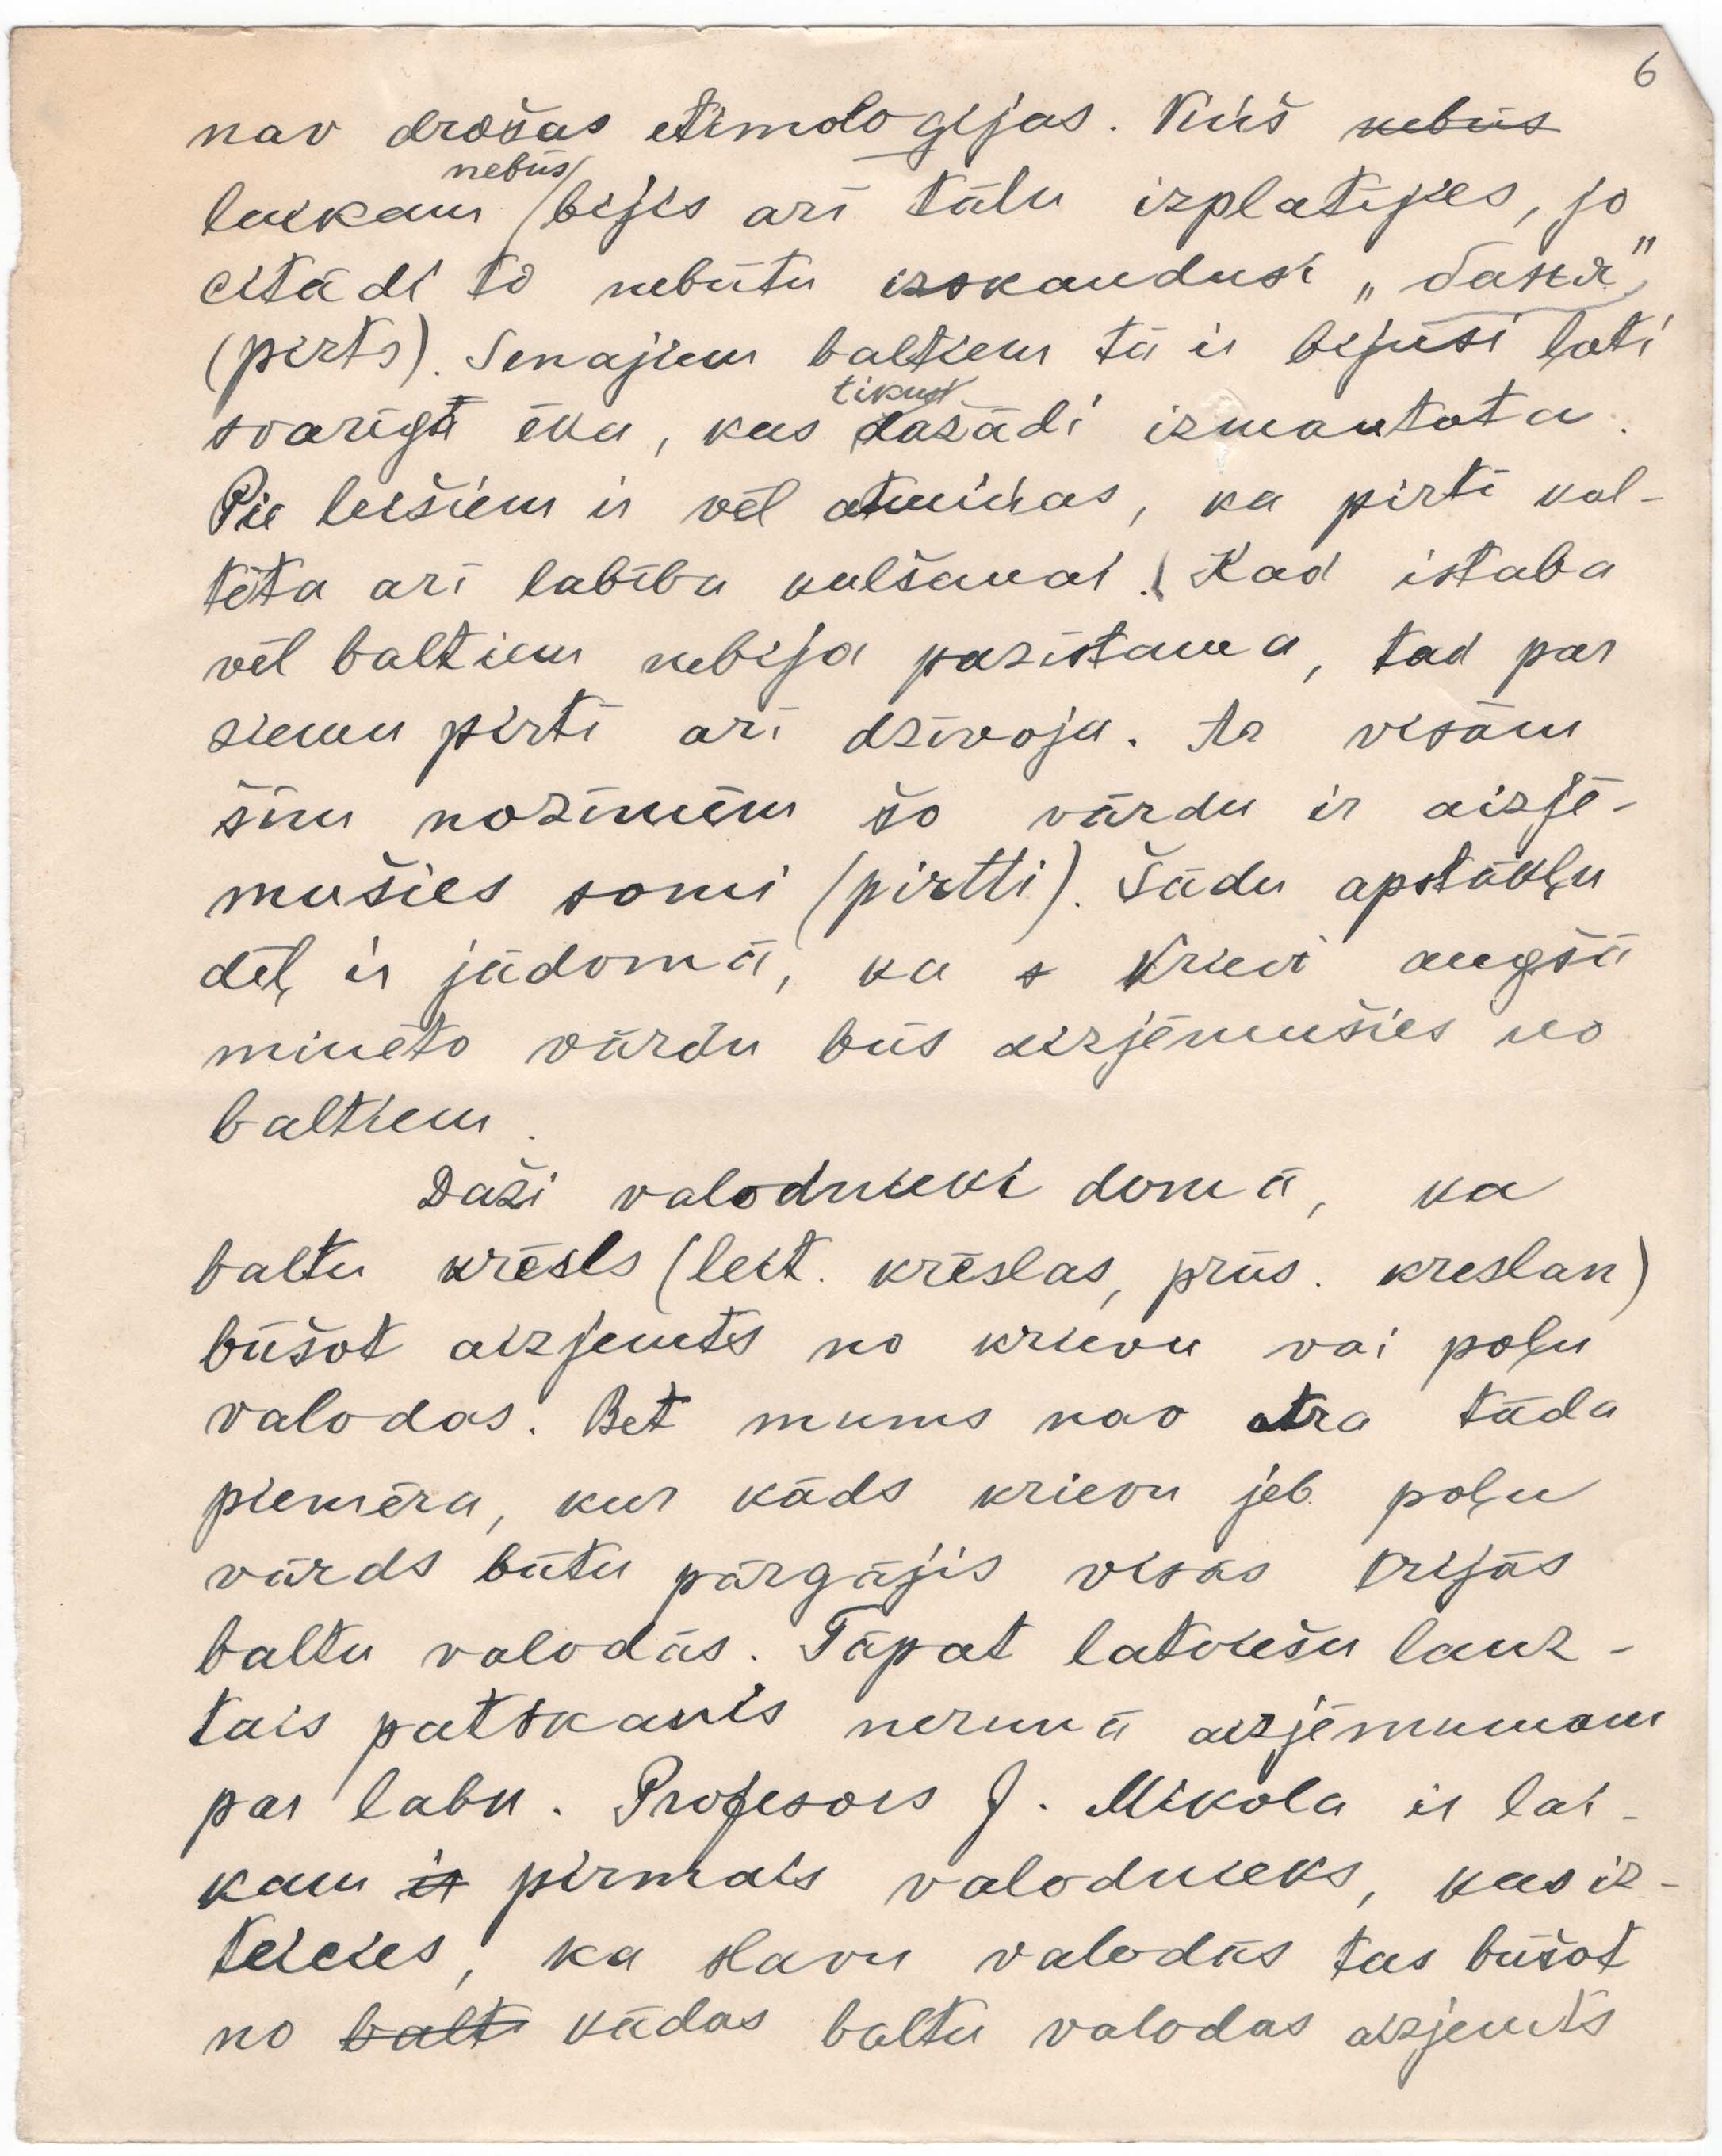 6
nav drošas etimoloģijas. Viņš ~~nebūs~~
laikam nebūs bijis arī tālu izplatījies, jo
citādi to nebūtu izskaudusi „баня”
(pirts). Senajiem baltiem tā ir bijusi ļoti
svarīga ēka, kas tikusi dažādi izmantota.
Pie leišiem ir vēl atmiņas, ka pirtī kal-
tēta arī labība kulšanai. (Kad istaba
vēl baltiem nebija pazīstama, tad par
ziemu pirtī arī dzīvoja. Ar visām
šīm nozīmēm šo vārdu ir aizņē-
mušies somi (pirtti). Šādu apstākļu
dēļ ir jādomā, ka ~~s~~ krievi augšā
minēto vārdu būs aizņēmušies no
baltiem.
Daži valodnieki domā, ka
baltu krēsls (leit. krėslas, prūs. kreslan)
būšot aizņemts no krievu vai poļu
valodas. Bet mums nav otra tāda
piemēra, kur kāds krievu jeb poļu
vārds būtu pārgājis visās trijās
baltu valodās. Tāpat latviešu lauz-
tais patskanis nerunā aizņēmumam
par labu. Profesors J. Mikola ir lai-
kam ~~ir~~ pirmais valodnieks, kas iz-
teicies, ka slavu valodās tas būšot
no ~~balt~~ kādas baltu valodas aizņemts